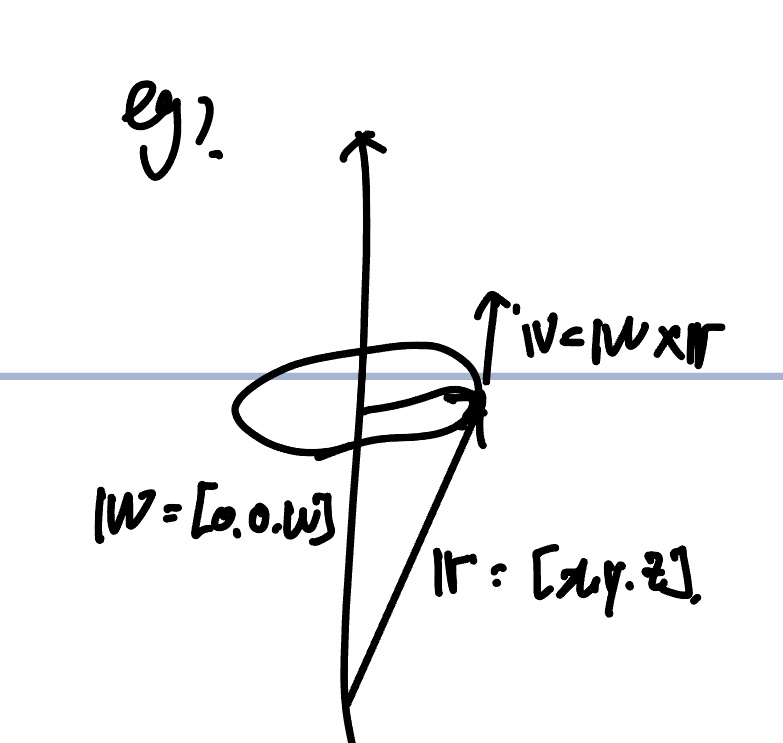 eg).
𝕍=𝕎×𝕣
𝕎=[0.0.w]
𝕣=[x,y.z].